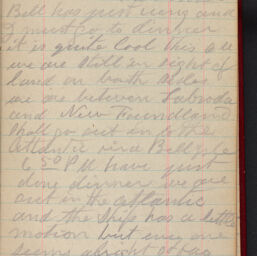 Bell has just rung and
I must go to dinner
it is quite cool this a m
we are still in sight of
land on both sides
we are between Labrador
and New Foundland
shall go out in to the
Atlantic via Bell Isle
6 50 P M have just
done dinner we are
out in the Atlantic
and the ship has a little
motion but every one
seems alright so far